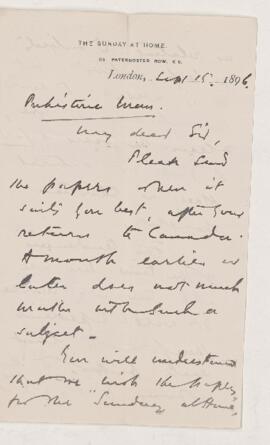 THE SUNDAY AT HOME.
56 PATERNOSTER ROW, E.C.
London, Sep 15. 1896.
Prehistoric Man.
My dear Sir,
Please send
the papers when it
suits you best, after your
return to Canada.
A month earlier or
later does not much
matter with such a
subject.
You will understand
that we wish the papers
for the "Sunday at Home",